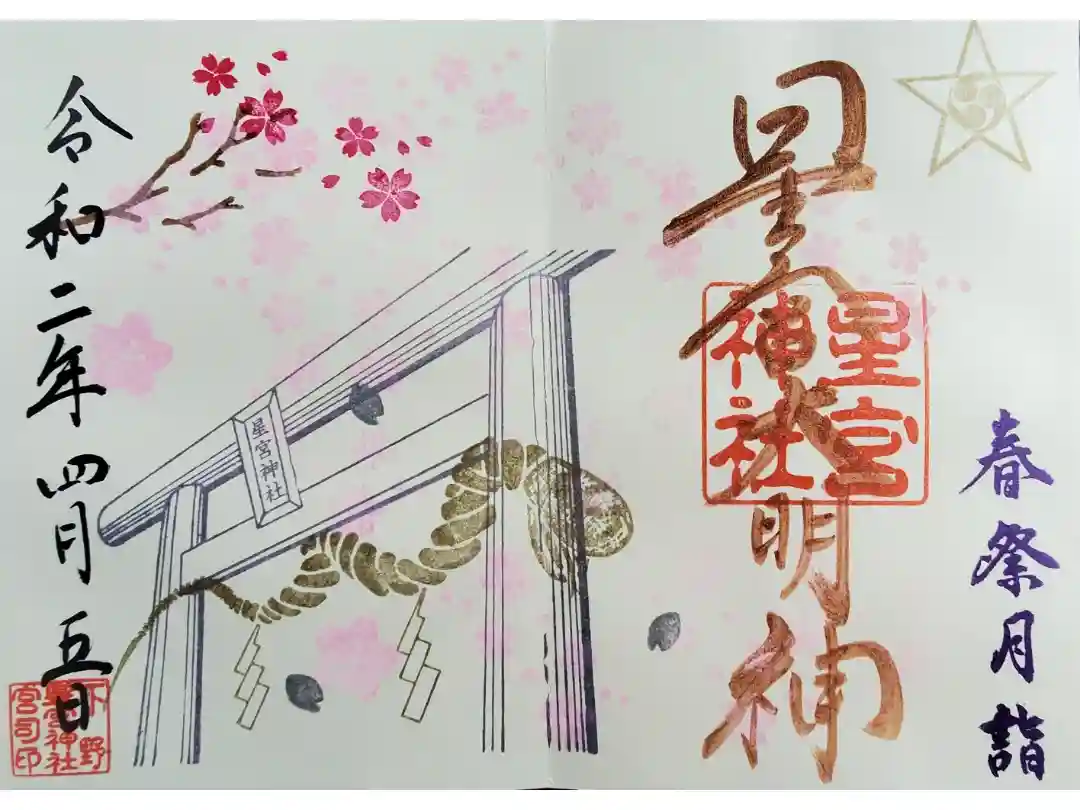 春祭月詣
星大明神
星宮神社
星宮神社
令和二年四月五日
下野
星宮神社
宮司印